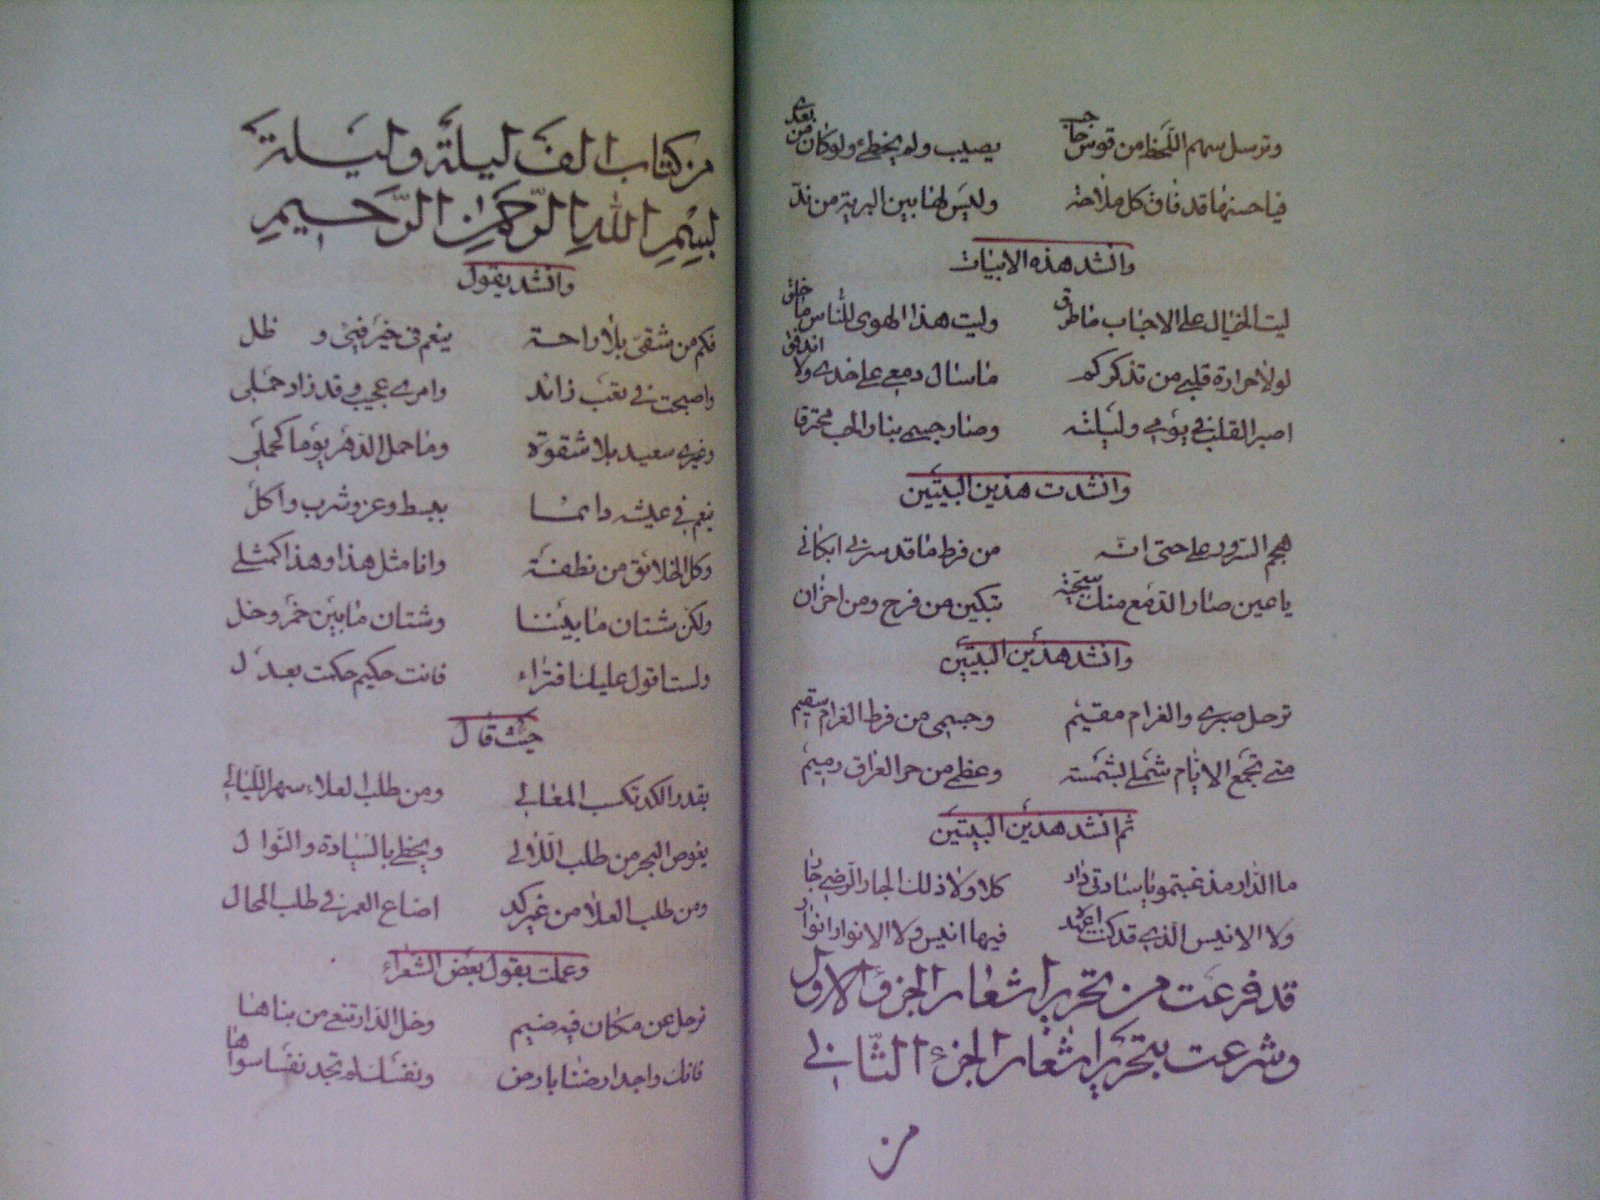 وترسل سهم اللحظ من قوس حاجب يصيب ولم يخطئ ولو كان من بعدي
فيا حسنها قد فاق كل ملاحة وليس لها بين البرية من ند
وانشد هذه الابيات
ليت الخيال على الاحباب ما طرق وليت هذا الهوى للناس ما خلق
لولا حرارة قلبي من تذكركم ما سال دمعي على خدي ولا اندفق
اصبر القلب في يومي وليلته وصار جسمي بنار الحب محترقا
وانشدت هذين البيتين
هجم السرور علي حتى انه من فرط ما قد سرني ابكاني
يا عين صار الدمع منك سجية تبكين من فرح ومن احزان
وانشد هذين البيتين
ترحل صبري والغرام مقيم وجسمي من فرط الغرام سقيم
متى تجمع الايام شملي بشملته وعظمي من حر الفراق رميم
ثم انشد هذين البيتين
ما الدار مذ غبتمو يا سادتي دار كلا ولا ذلك الجار الرضي جار
ولا الانيس الذي قد كنت اعهد فيها انيس ولا الانوار انوار
قد فرغت من تحرير اشعار الجزء الاول
وشرعت بتحرير اشعار الجزء الثاني
من
من كتاب الف ليلة وليلة
بسم الله الرحمن الرحيم
وانشد يقول
فكم من شقي بلا راحة ينعم في خير فيئ و ظل
واصبحت في تعب زائد وامري عجيب وقد زاد حملي
وغيري سعيد بلا شقوة وما حمل الدهر يوما كحملي
ينعم في عيشه دائما ببسط وعز وشرب واكل
وكل الخلائق من نطفة وانا مثل هذا وهذا كمثلي
ولكن شتان ما بيننا وشتان ما بين خمر وخل
ولست اقول عليك افتراء فانت حكيم حكمت بعدل
حيث قال
بقدر الكد تكسب المعالي ومن طلب العلاء سهر الليالي
يغوص البحر من طلب اللآلي ويحظى بالسيادة والنوال
ومن طلب العلا من غير كد اضاع العمر في طلب المحال
وعملت بقول بعض الشعراء
ترحل عن مكان فيه ضيم وخل الدار تنعي من بناها
فانك واجد ارضا بارض ونفسك لم تجد نفسا سواها